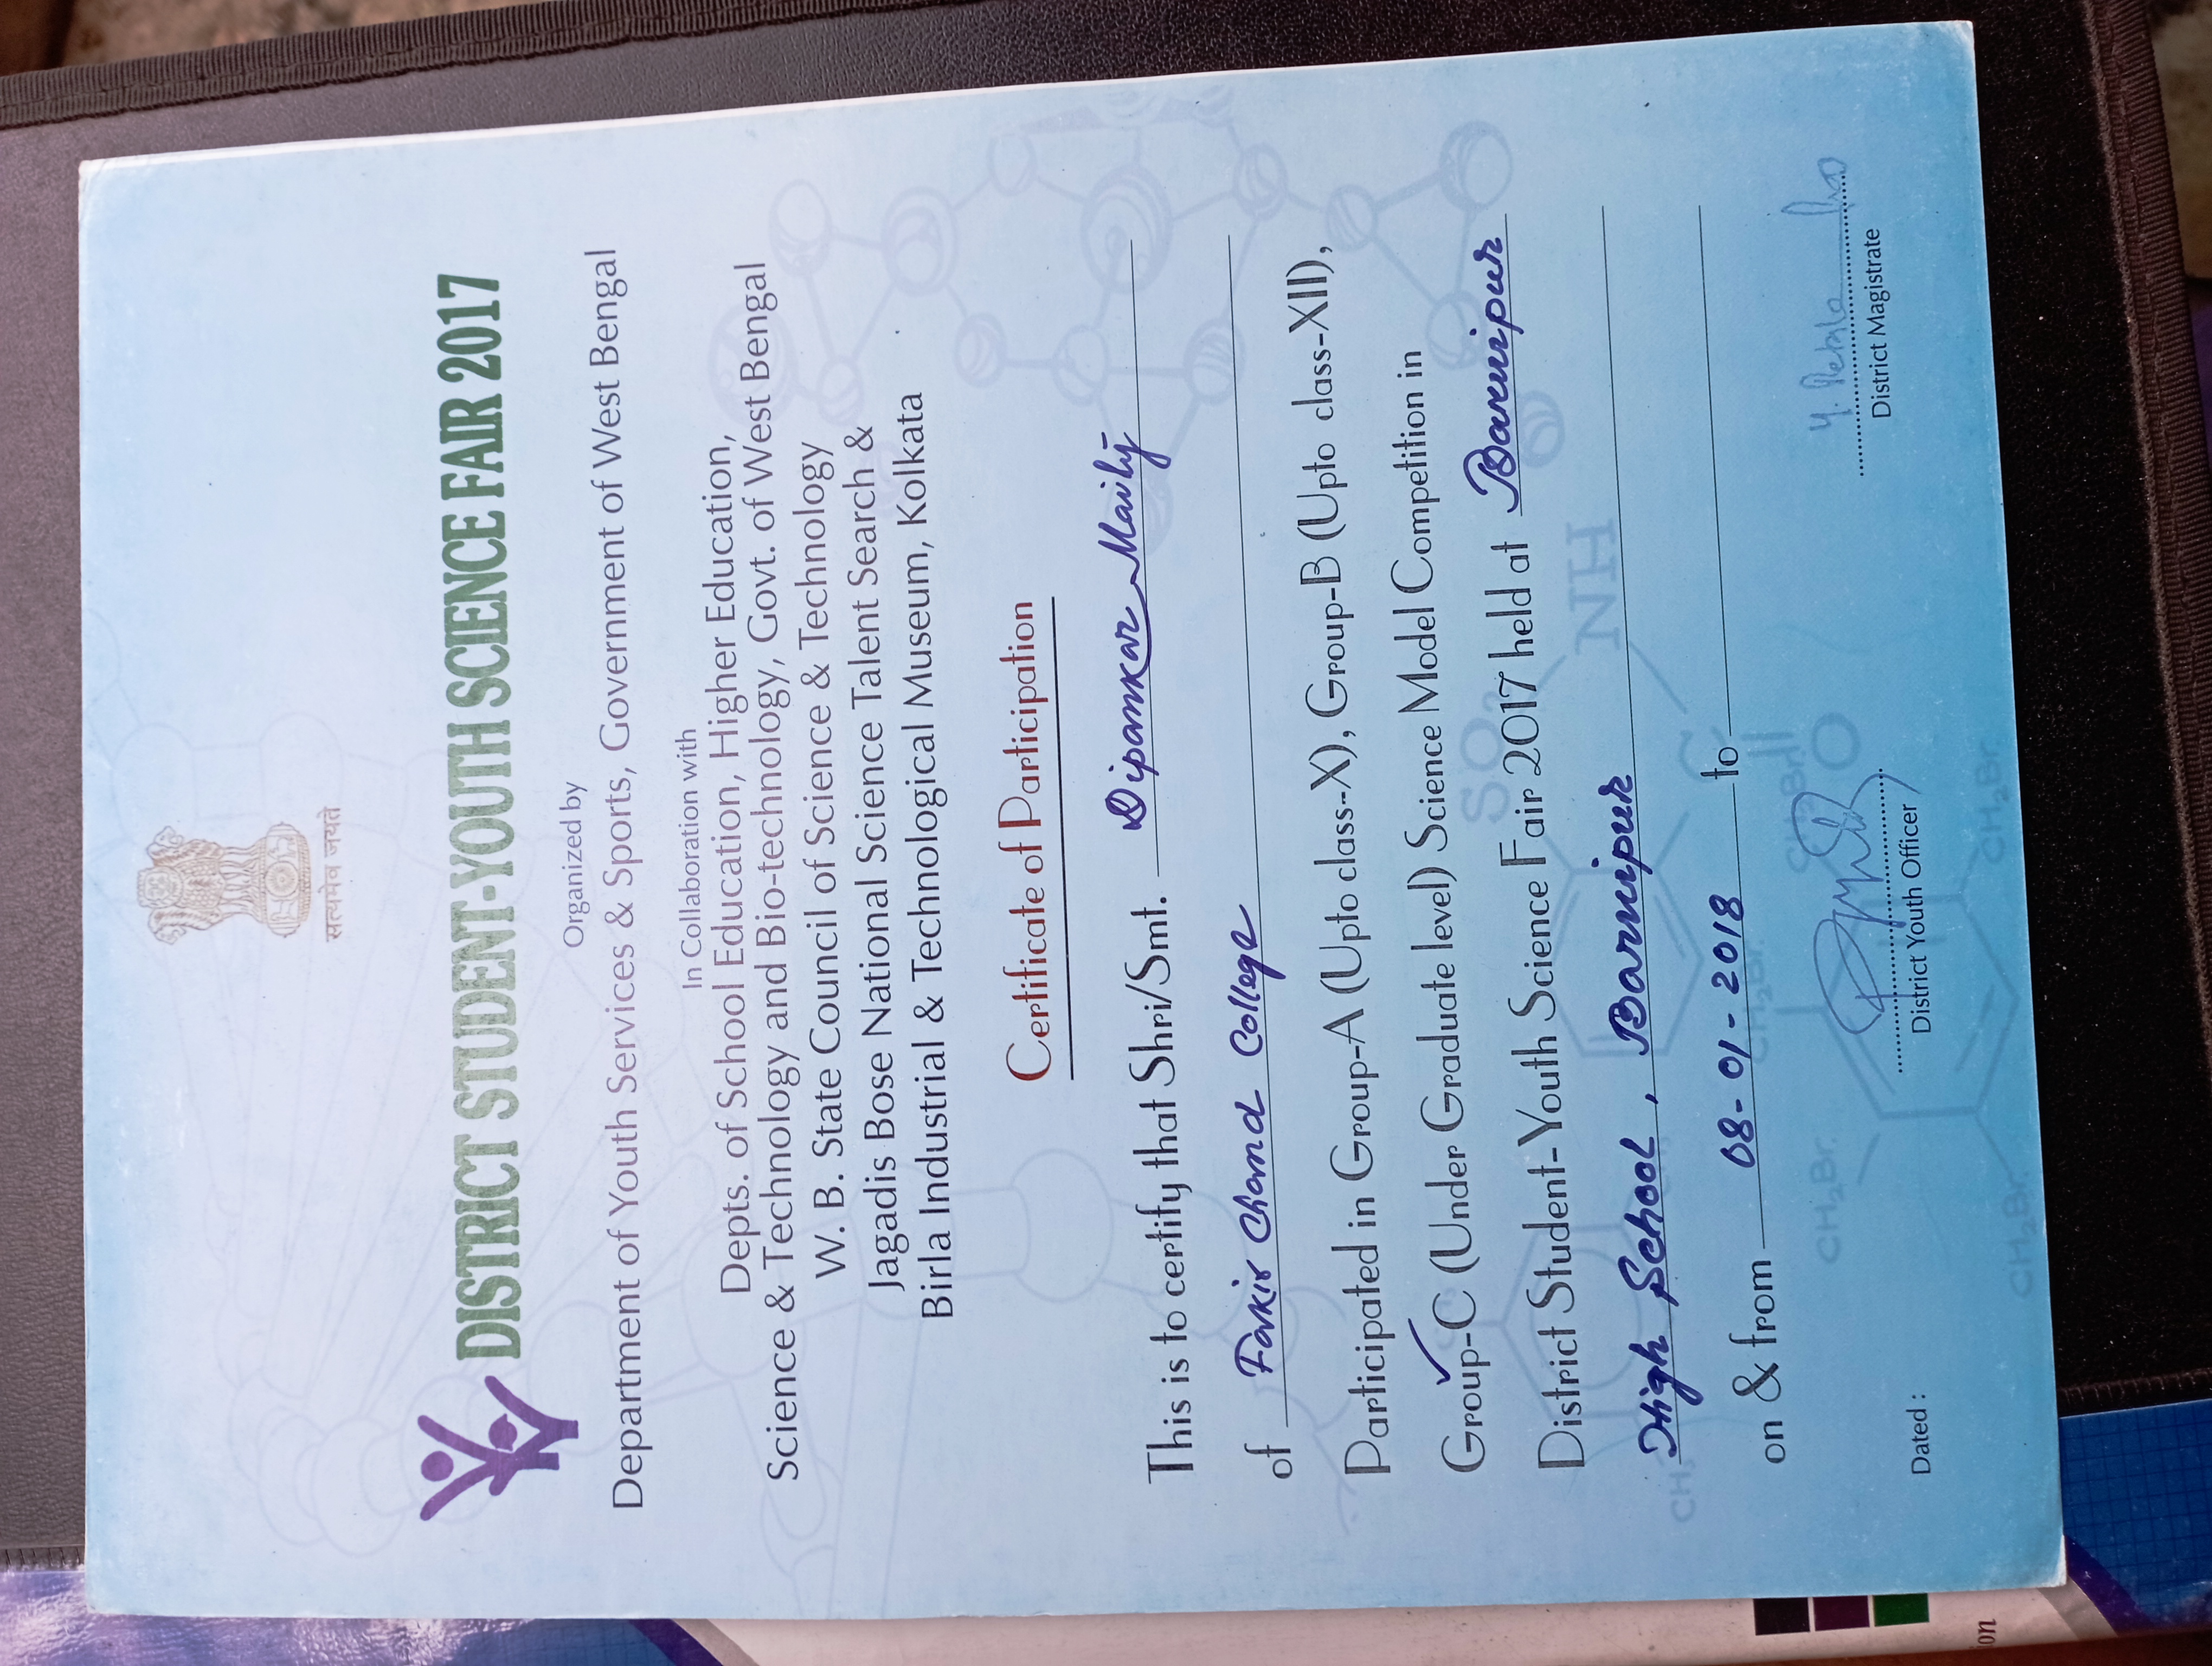 सत्यमेव जयते
DISTRICT STUDENT-YOUTH SCIENCE FAIR 2017
Organized by
Department of Youth Services & Sports, Government of West Bengal
In Collaboration with
Depts. of School Education, Higher Education,
Science & Technology and Bio-technology, Govt. of West Bengal
W. B. State Council of Science & Technology
Jagadis Bose National Science Talent Search &
Birla Industrial & Technological Museum, Kolkata
Certificate of Participation
This is to certify that Shri/Smt. Dipankar Maity
of Fakir Chand College
Participated in Group-A (Upto class-X), Group-B (Upto class-XII),
Group-C (Under Graduate level) Science Model Competition in
SO2
District Student-Youth Science Fair 2017 held at Baruipur
NH
High School, Baruipur
CH3
on & from 08-01-2018 to
CH2Br
CH2Br
CH2Br
O
Dated :
District Youth Officer
District Magistrate
CH2Br
CH2Br
on